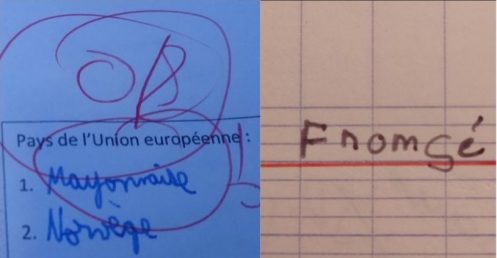 0/8
Pays de l'Union européenne :
1. Mayonnaise
2. Norvège
Fromgé